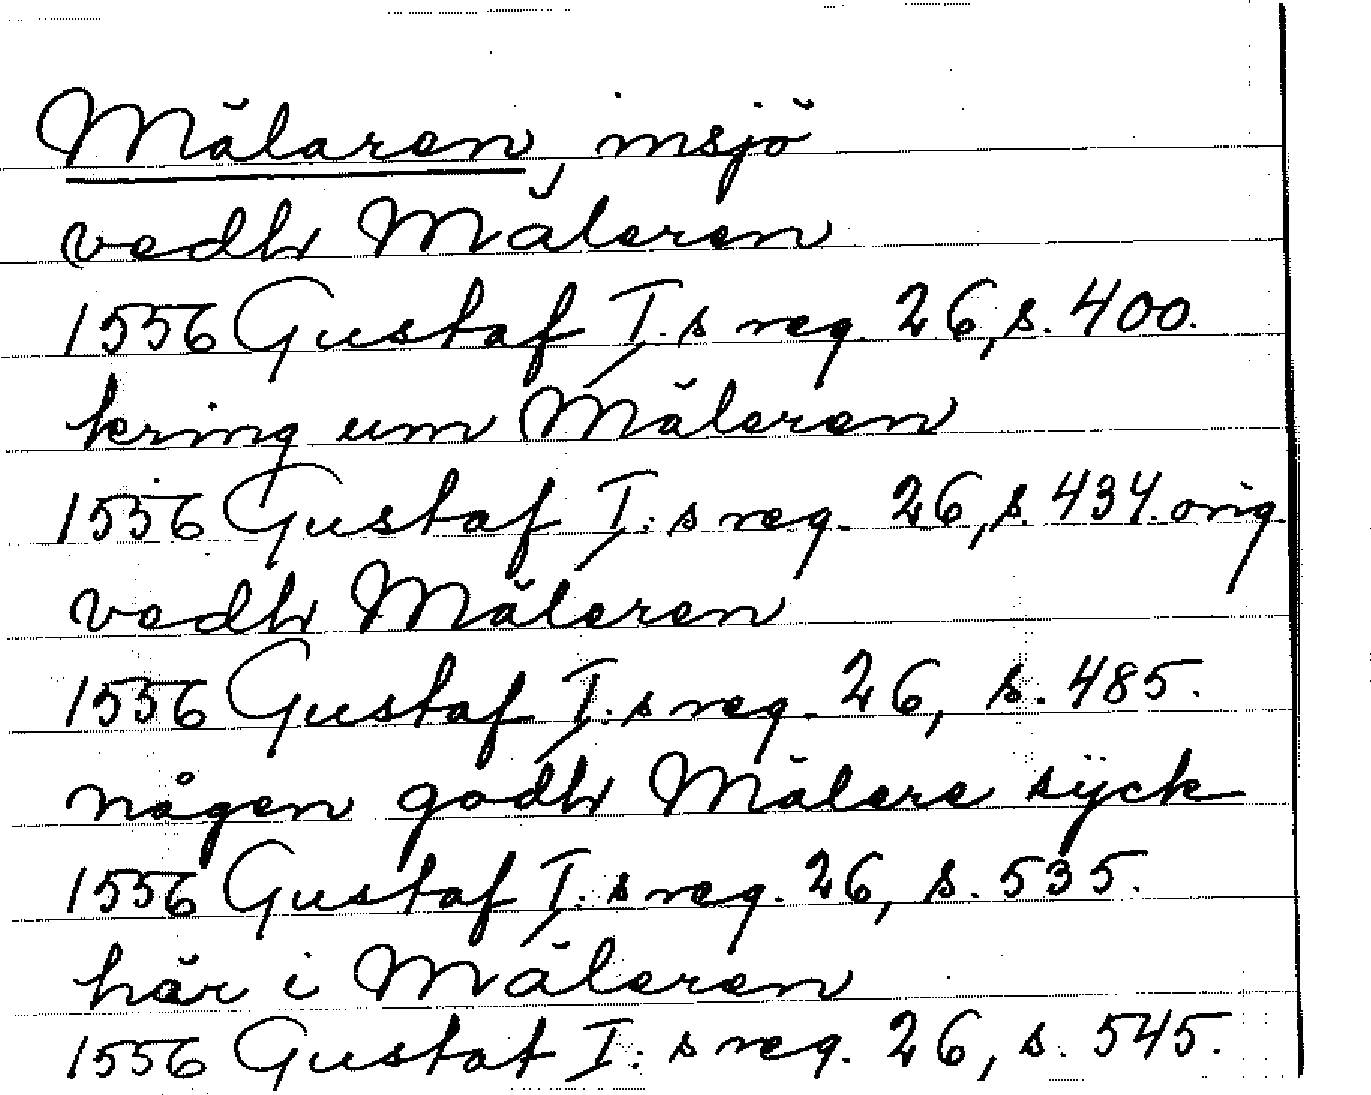 Mälaren, insjö
vedh Mäleren
1556 Gustaf I:s reg. 26, s. 400.
kring um Mäleren
1556 Gustaf I:s reg. 26, s. 434. orig.
vedh Mäleren
1556 Gustaf I:s reg. 26, s. 485.
någen godh Mälere sijck
1556 Gustaf I:s reg. 26, s. 535.
här i Mäleren
1556 Gustaf I:s reg. 26, s. 545.